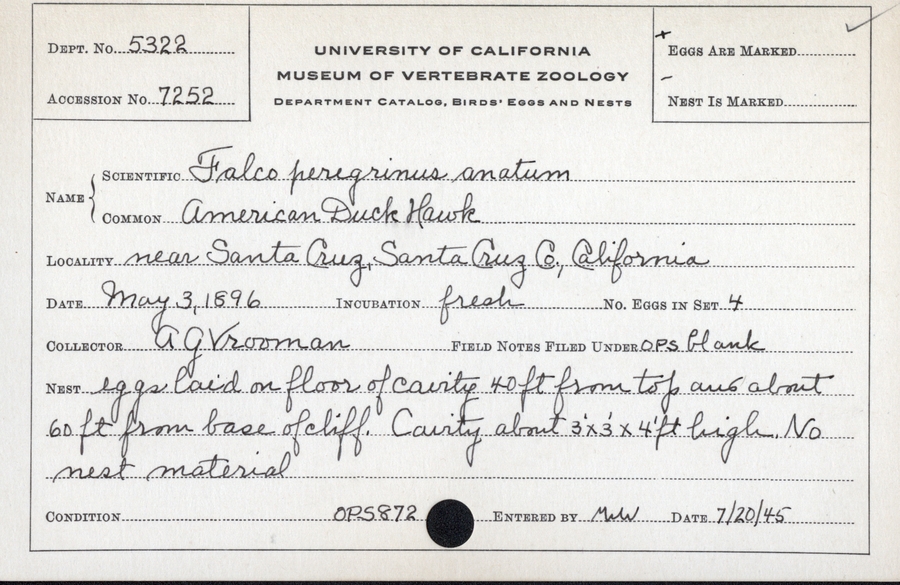 DEPT. No. 5322
ACCESSION No. 7252
UNIVERSITY OF CALIFORNIA
MUSEUM OF VERTEBRATE ZOOLOGY
DEPARTMENT CATALOG, BIRDS' EGGS AND NESTS
+ EGGS ARE MARKED
- NEST IS MARKED
NAME { SCIENTIFIC Falco peregrinus anatum
COMMON American Duck Hawk
LOCALITY near Santa Cruz, Santa Cruz Co., California
DATE May 3, 1896 INCUBATION fresh No. EGGS IN SET 4
COLLECTOR A G Vrooman FIELD NOTES FILED UNDER OPS blank
NEST eggs laid on floor of cavity 40 ft from top and about
60 ft from base of cliff. Cavity about 3'x3'x4' ft high. No
nest material
CONDITION OPS872 ENTERED BY DATE 7/20/45